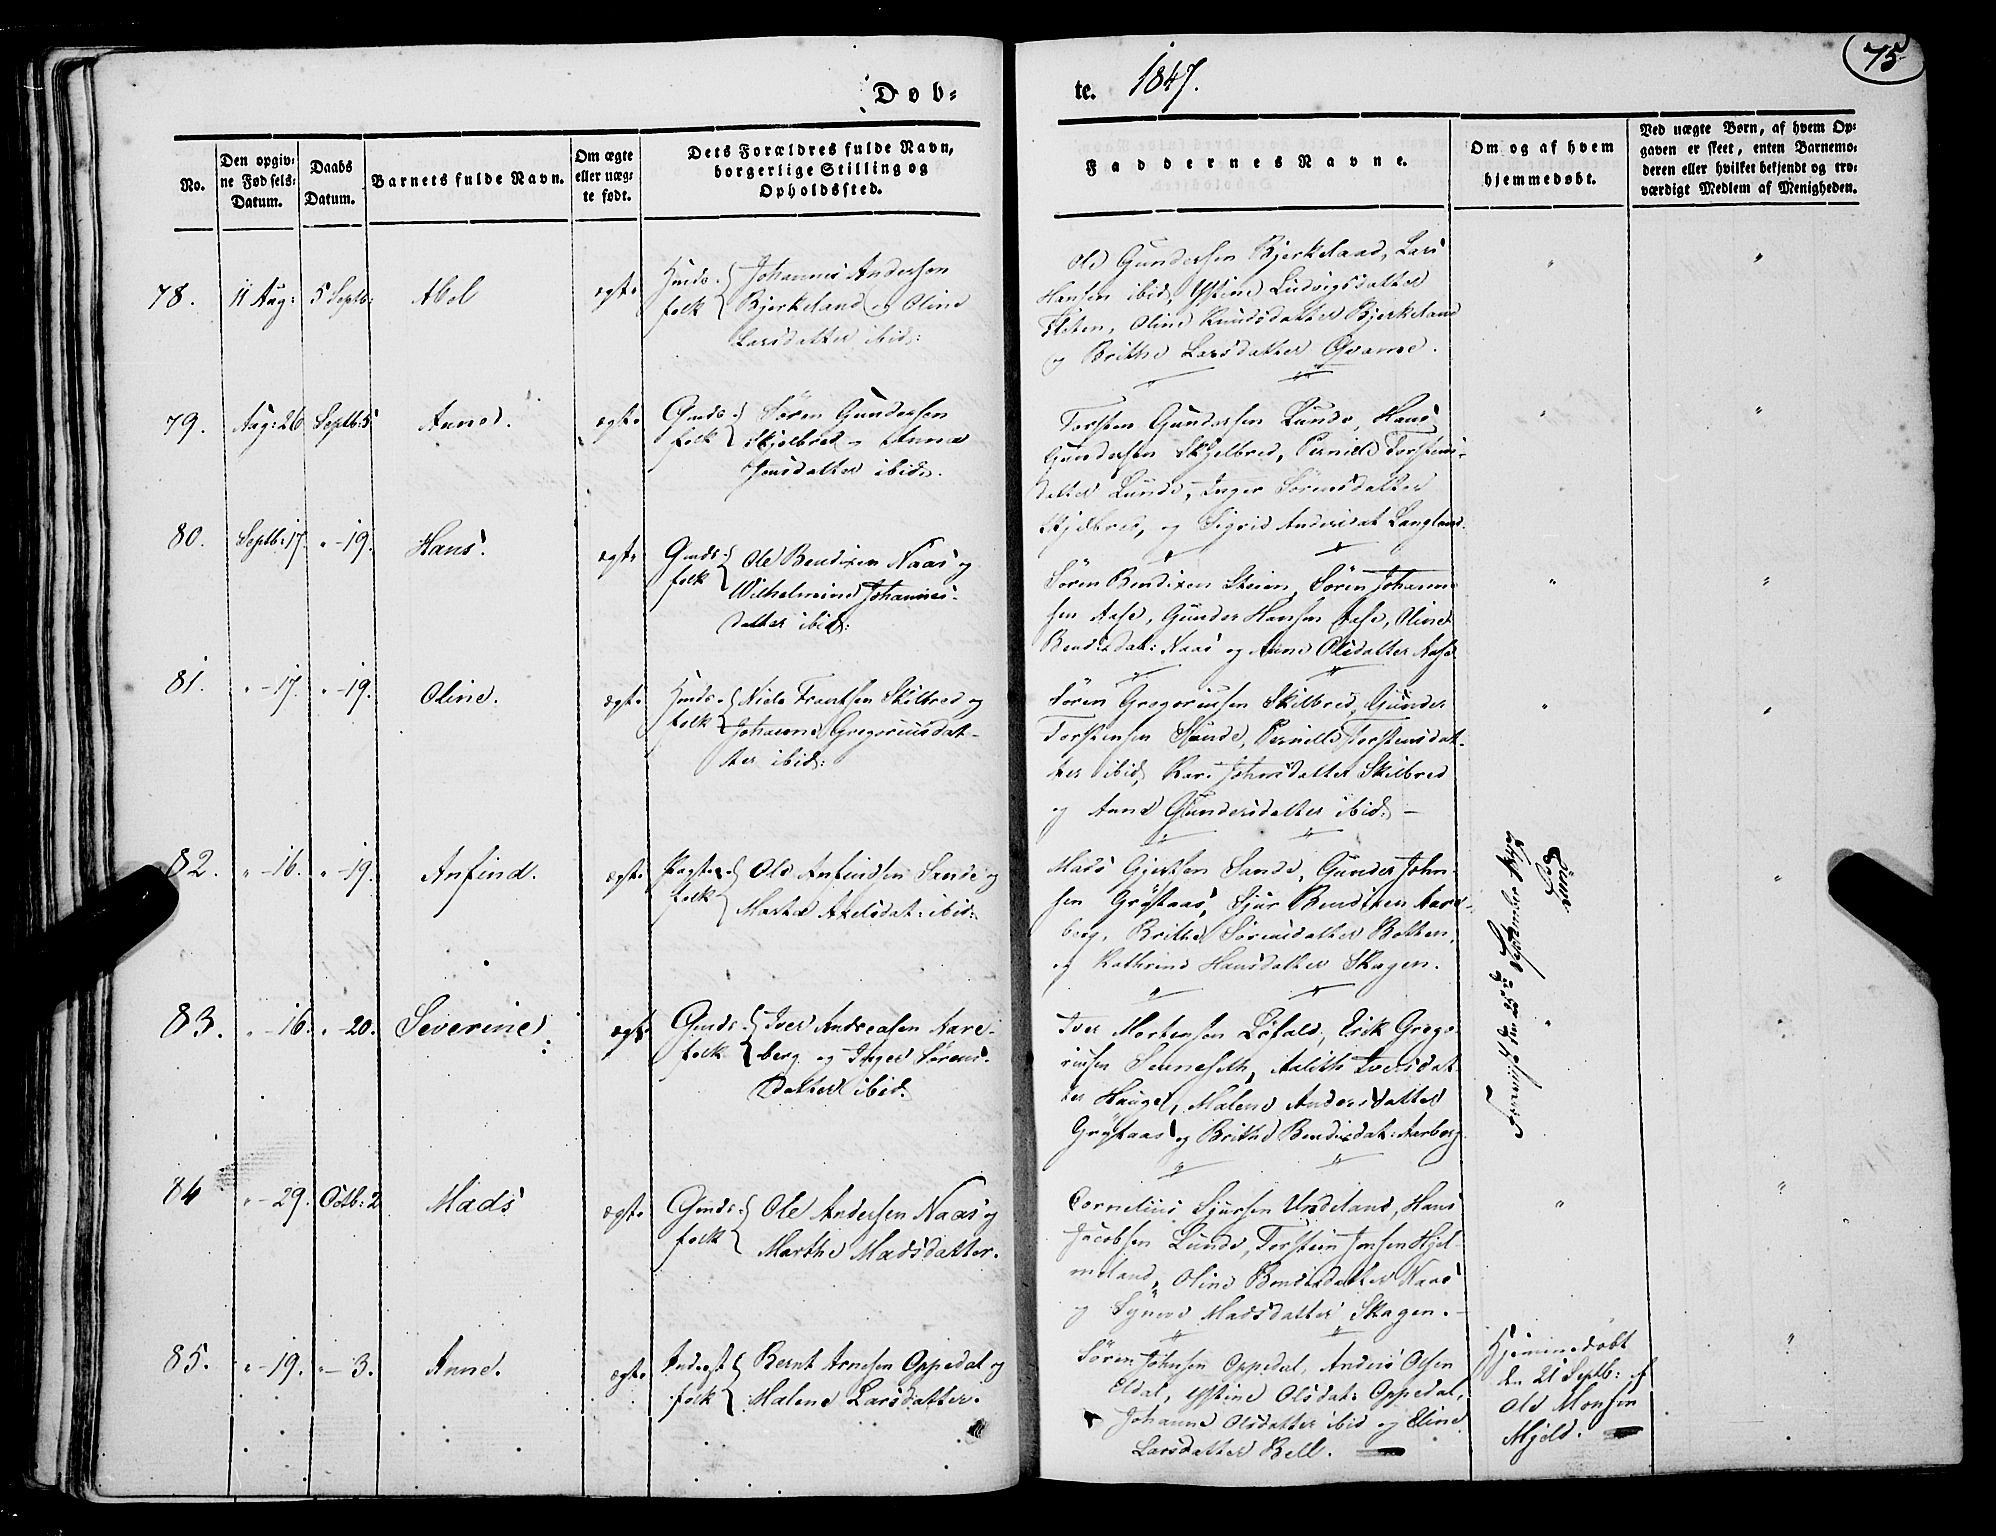 Døb-
te. 1847.
75.
No.
Den opgiv-
ne Fødsels-
Datum.
Daabs
Datum.
Barnets fulde Navn.
Om ægte
eller uæg-
te født.
Dets Forældres fulde Navn,
borgerlige Stilling og
Opholdssted.
Faddernes Navne.
Om og af hvem
hjemmedøbt.
Ved uægte Børn, af hvem Op-
gaven er skeet, enten Barnemo-
deren eller hvilket bekjendt og tro-
værdigt Medlem af Menigheden.
78. 11 Aug: 5 Septb: Abel ægte
folk
Johannes Andersen
Bjerkeland og Oline
Larsdatter ibid:
Ole Gundersen Bjerkeland, Lars
Hansen ibid, Ludvigsdatter
Oline Knudsdatter Bjerkeland
og Brithe Larsdatter Qvamme.
79. Aug: 26 Septb: 5 Anne. ægte
Gmds:
folk
Søren Gundersen
Skjelbred og Anna
Jensdatter ibid.
Torsten Gundersen Lunde, Hans
Gundersen Skjelbred, Pernille Torstens-
datter Lunde, Inger Sørensdatter
Skjelbred, og Sigrid Andersdat Langland.
80. Septb: 17. " - 19. Hans. ægte
Gmds:
folk
Ole Bendixen Naas og
Wilhelmine Johannes-
datter ibid:
Søren Bendixen Steien, Søren Johanne-
sen Aase, Gunder Hansen Aase, Oline
Bendixdat: Naas og Anne Olsdatter Aase
81. " - 17. " - 19. Oline. ægte
folk
Niels Frantsen Skilbred og
Johanne Gregoriusdat-
ter ibid:
Søren Gregoriusen Skilbred, Gunder
Torstensen Sunde, Pernille Torstensdat-
ter ibid, Kari Johnsdatter Skilbred
og Anne Gundersdatter ibid: -
82. " - 16. " - 19. Anfind. ægte
folk
Ole Anfindsen Sande og
Marthe Axelsdat: ibid:
Mads Gjertsen Sande, Gunder John-
sen Grytaas, Sjur Bendixen Aare-
berg, Brithe Sørensdatter Botten,
og Kathrine Hansdatter Skagen.
September 1847
Lund
83. " - 16. " - 20. Severine. ægte
Gmds:
folk
Iver Andreasen Aare-
berg og Inger Sørens-
datter ibid.
Iver Mortensen Løfald, Erik Grego-
riusen Senneseth, Aalith Iversdat-
ter Hauge, Malene Andersdatter
Grytaas og Brithe Bendixdat: Aarberg.
84 " - 29. Octb: 2 Mads ægte
Gmds:
folk
Ole Andersen Naas og
Marthe Madsdatter.
Cornelius Sjursen Undeland, Hans
Jacobsen Lunde, Torstein Jensen Hjel-
meland, Oline Bendixdatter Naas
og Synneve Madsdatter Skagen. -
85. " - 19. " - 3. Anne. ægte
folk
Bernt Arnesen Oppedal og
Malene Larsdatter.
Søren Johnsen Oppedal, Anders Olsen
Oldal, Olsdat: Oppedal,
Johanne Olsdatter ibid og Eline
Larsdatter Bell.
Hjemmedøbt
den 21 Septb: af
Ole Monsen
Mjeld.